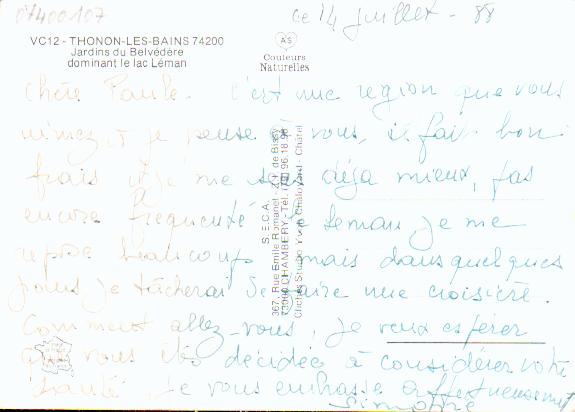 07400107
ce 14 juillet - 88
VC12 - THONON-LES-BAINS 74200
Jardins du Belvédère
dominant le lac Léman
AS
Couleurs
Naturelles
Chère Paule. C'est une région que vous
aimez et je pense à vous, il fait bon
frais et je me sens déjà mieux, pas
encore fréquenté le Léman je me
repose beaucoup mais dans quelques
jours je tâcherai de faire une croisière.
Comment allez-vous, je veux espérer
que vous êtes décidée à considérer votre
santé. Je vous embrasse affectueusement
Simone
S.E.C.A.
367, Rue Emile Romanet - Z.I. de Bissy
73000 CHAMBERY - Tél. 96.18.98
Clichés Studio Yvan Chaloyard - Châtel